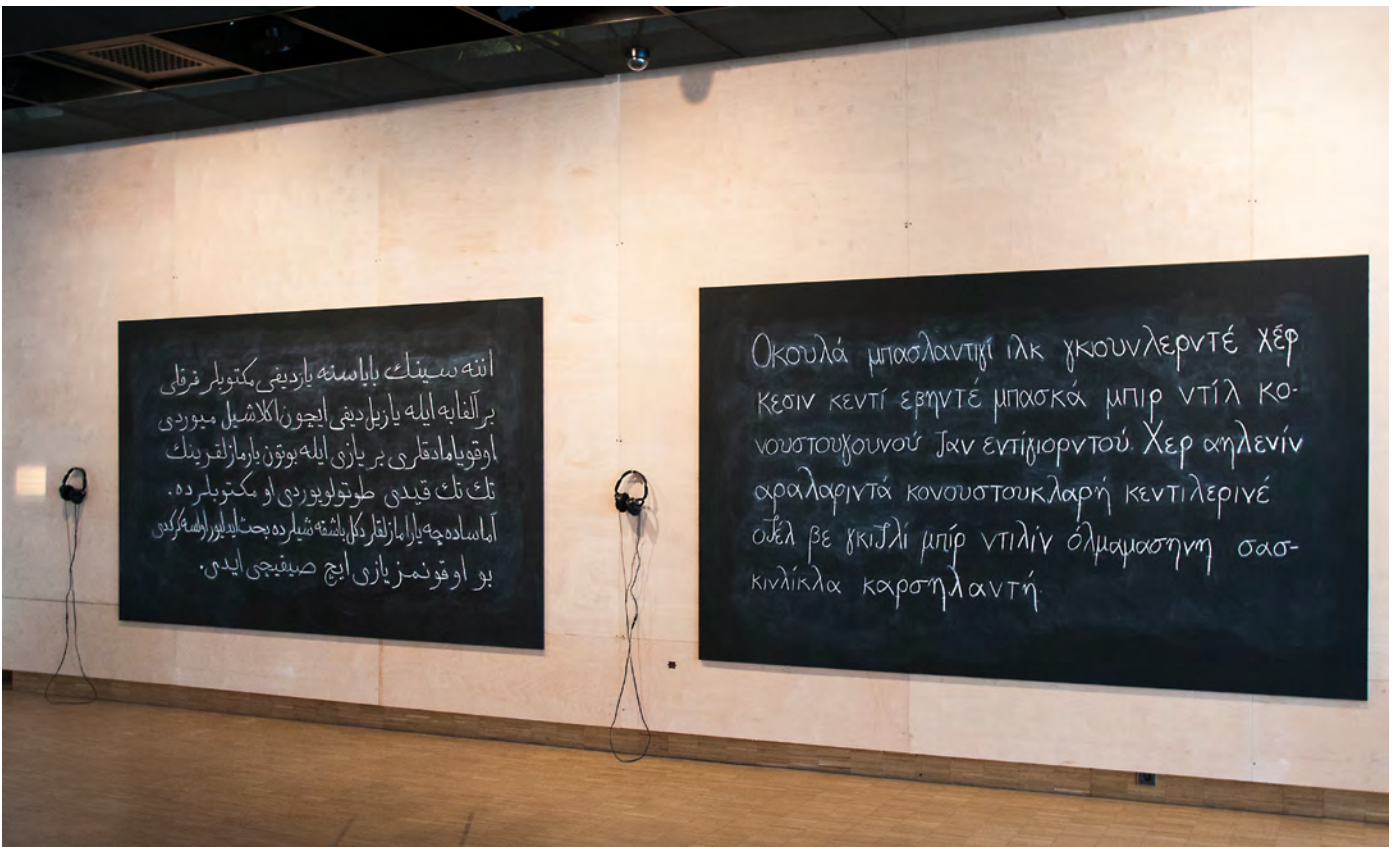 اننه سينك باباسنه يازديغى مكتوبلر فرقلى
بر آلفابه ايله يازيلديغى ايچون اكلاشيلميوردى
اوقوياماد‌قلرى بر يازى ايله بوتون يارمازلقرينك
تك تك قيدى طوتولويوردى او مكتوبلرده.
اما ساده چه يارامازلقلر دكل باشقه شيلر ده بحث ايديليور اولسه كركدى
بو اوقونمز يازى ايچ صيقيجى ايدى.
Οκουλά μπασλαντιγί ιλκ γκουνλερντέ χέρ
κεσιν κεντί εβηντέ μπασκά μπιρ ντίλ κο-
νουστουγουνού ζαν εντίγιορντού. Χερ αηλενίν
αραλαριντά κονουστουκλαρή κεντιλερινέ
οζέλ βε γκιζλί μπίρ ντιλίν όλμαμασηνη σασ-
κινλίκλα καρσηλαντή.